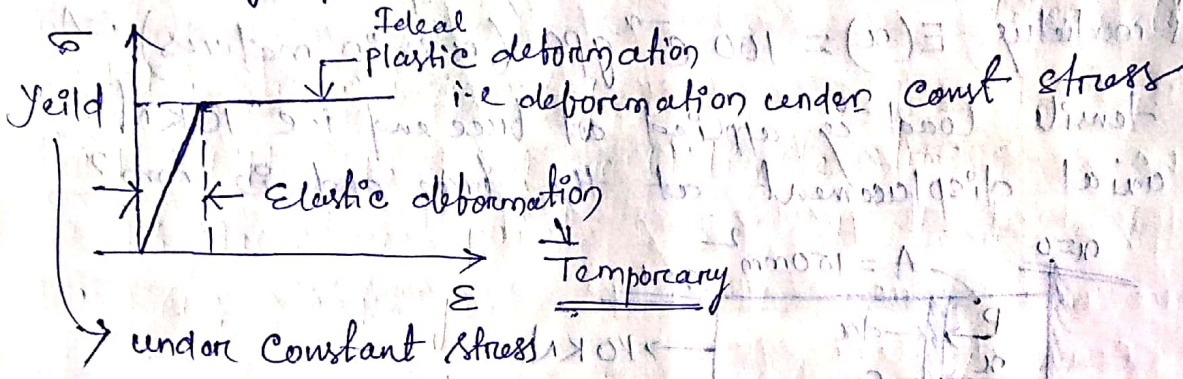 σ
Ideal
plastic deformation
Yeild
i-e deforemation under const stress
Elastic deformation
Temporcary
ε
under Constant stress